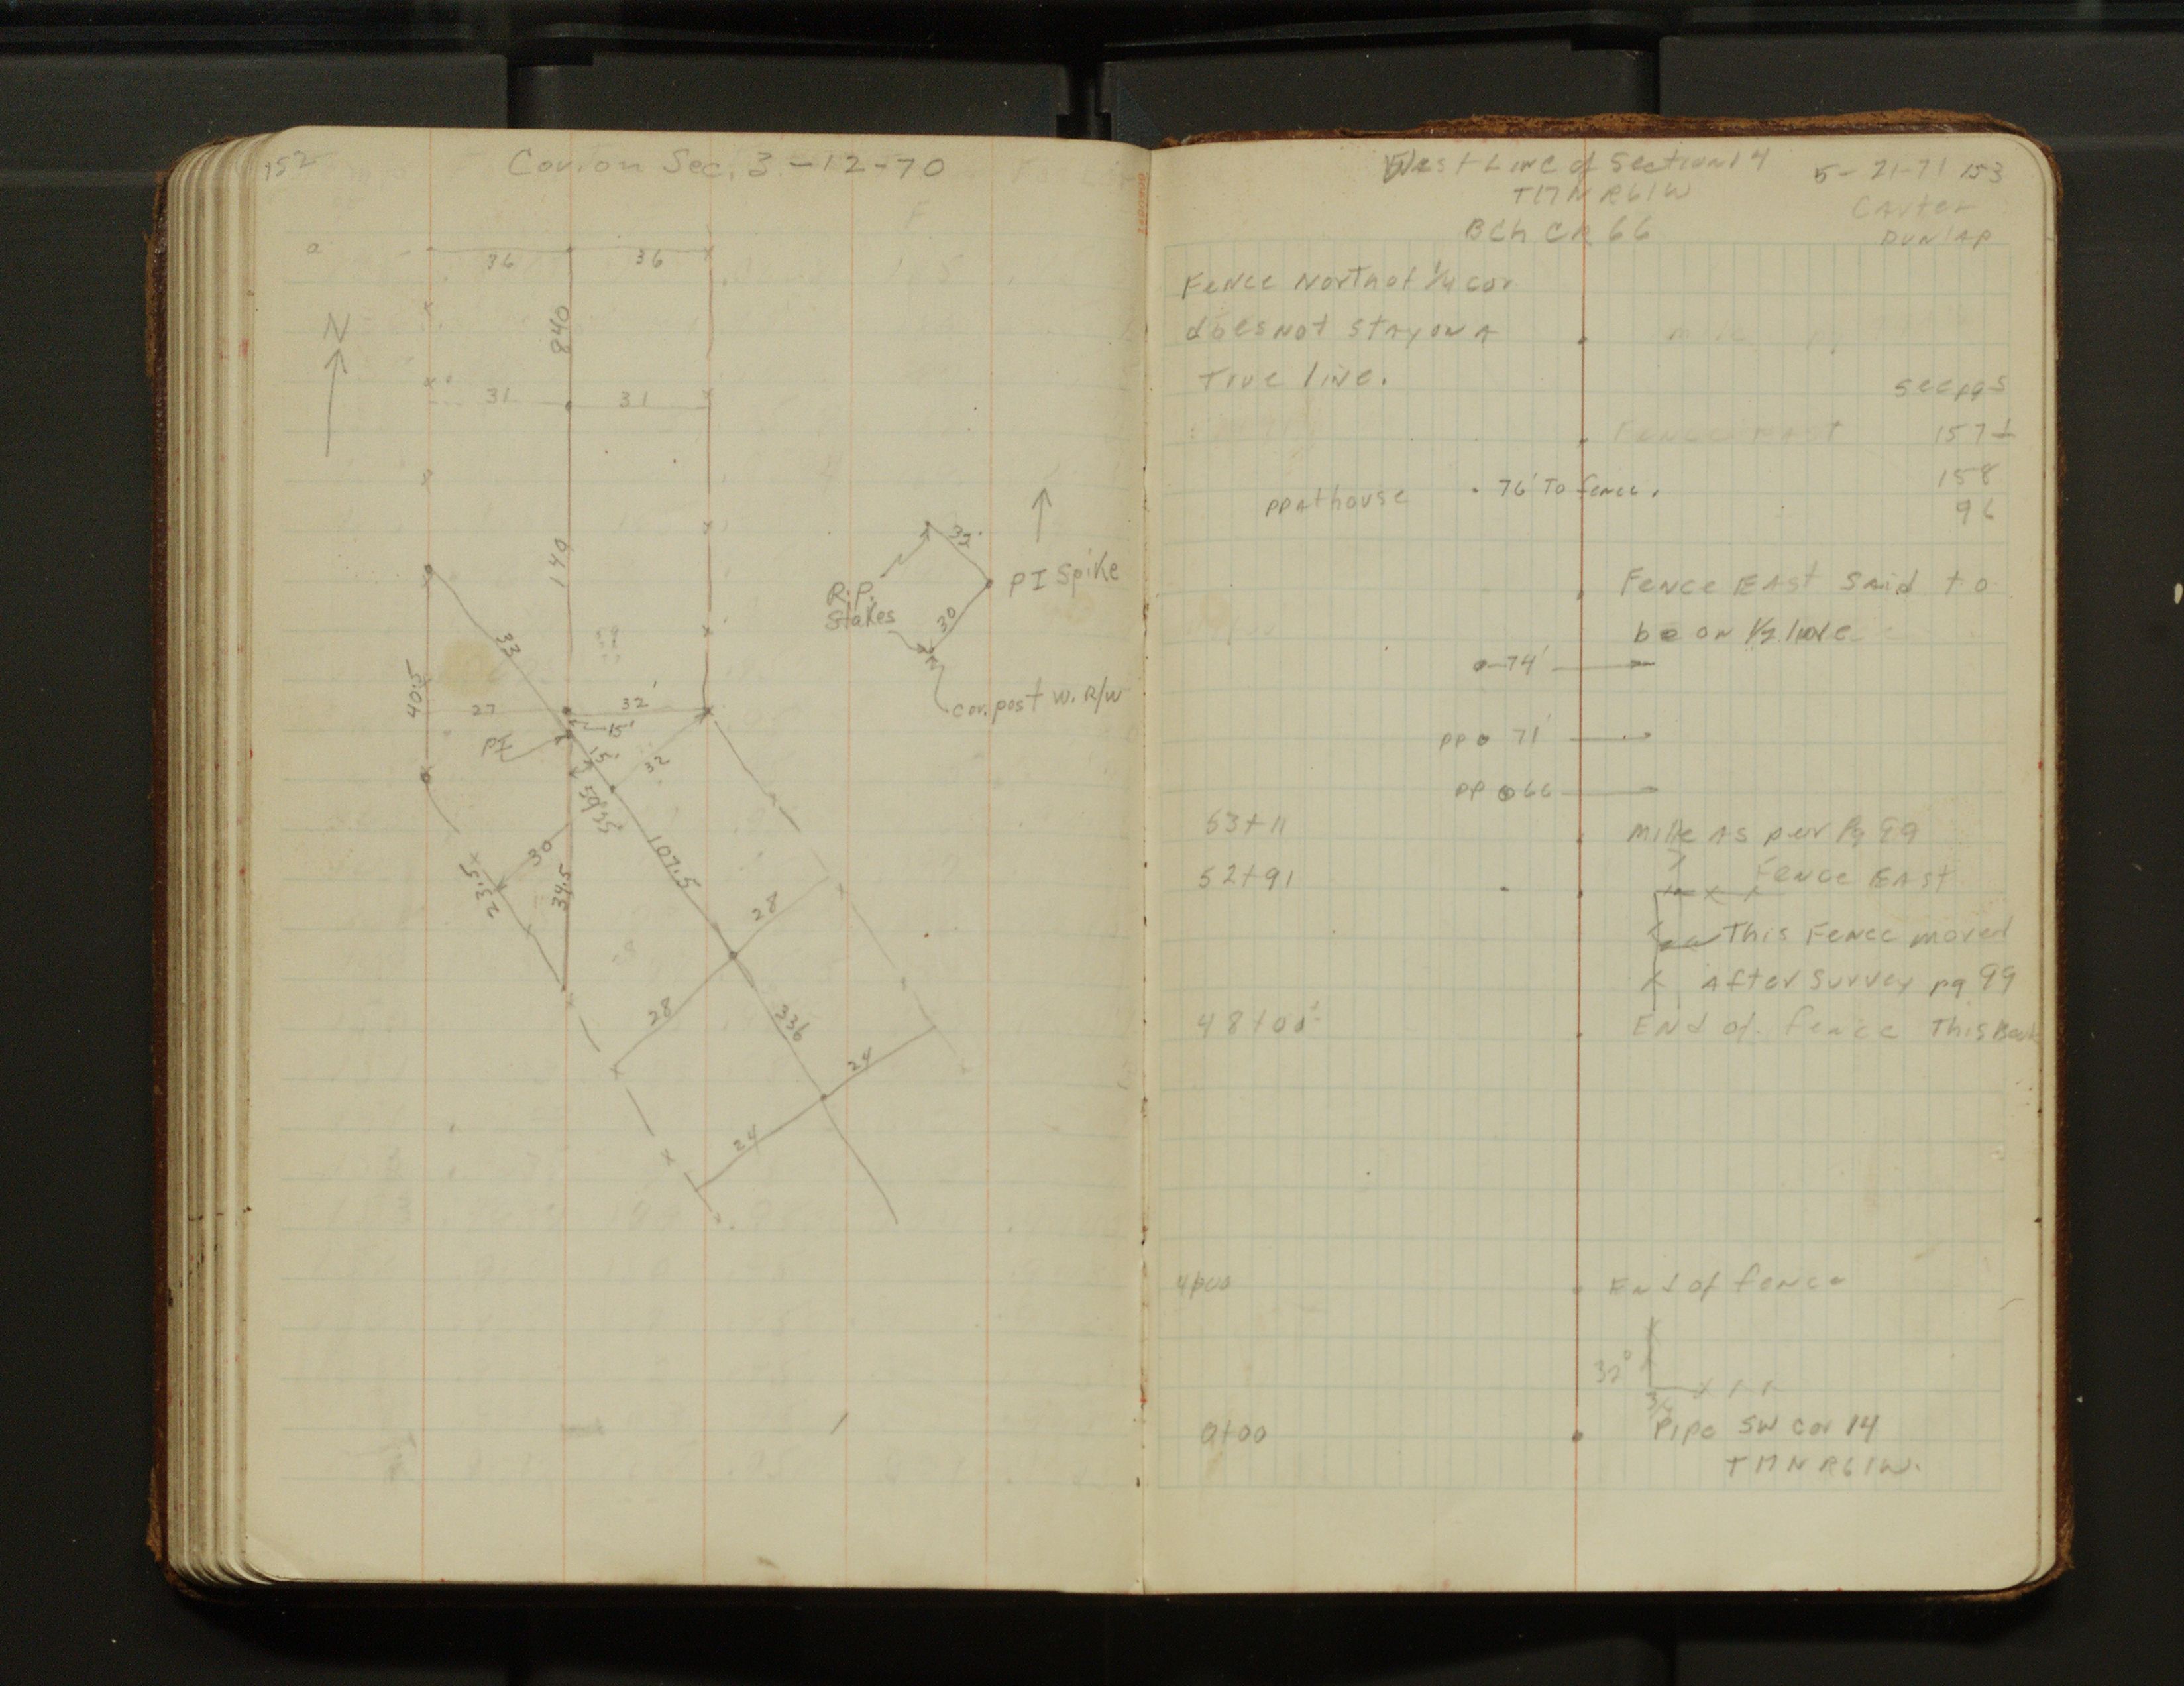 152
Cor. on Sec. 3-12-70
36 36
840
N
31 31
140
32'
R.P.
Stakes
PI Spike
30
cor. post W. R/W
33
40.5
27 32'
15'
PI
15'
32
59°35'
30
34.5
23.5
107.5
28
28
336
24
24
West Line of Section 14
T17N R61W
BCh CR 66
5-21-71 153
Carter
Dunlap
Fence North of 1/4 cor
does not stay on a
True line.
see pgs
Fence East
157+
158
96
PP at house 76' To fence.
Fence East Said to
be on 1/2 line
74'
PP 71'
PP 66
53+11 Mile as per Pg 99
52+91 Fence East
This Fence moved
After Survey pg 99
48+00± End of fence This Book
End of fence
0+00 Pipe SW cor 14
T17N R61W.